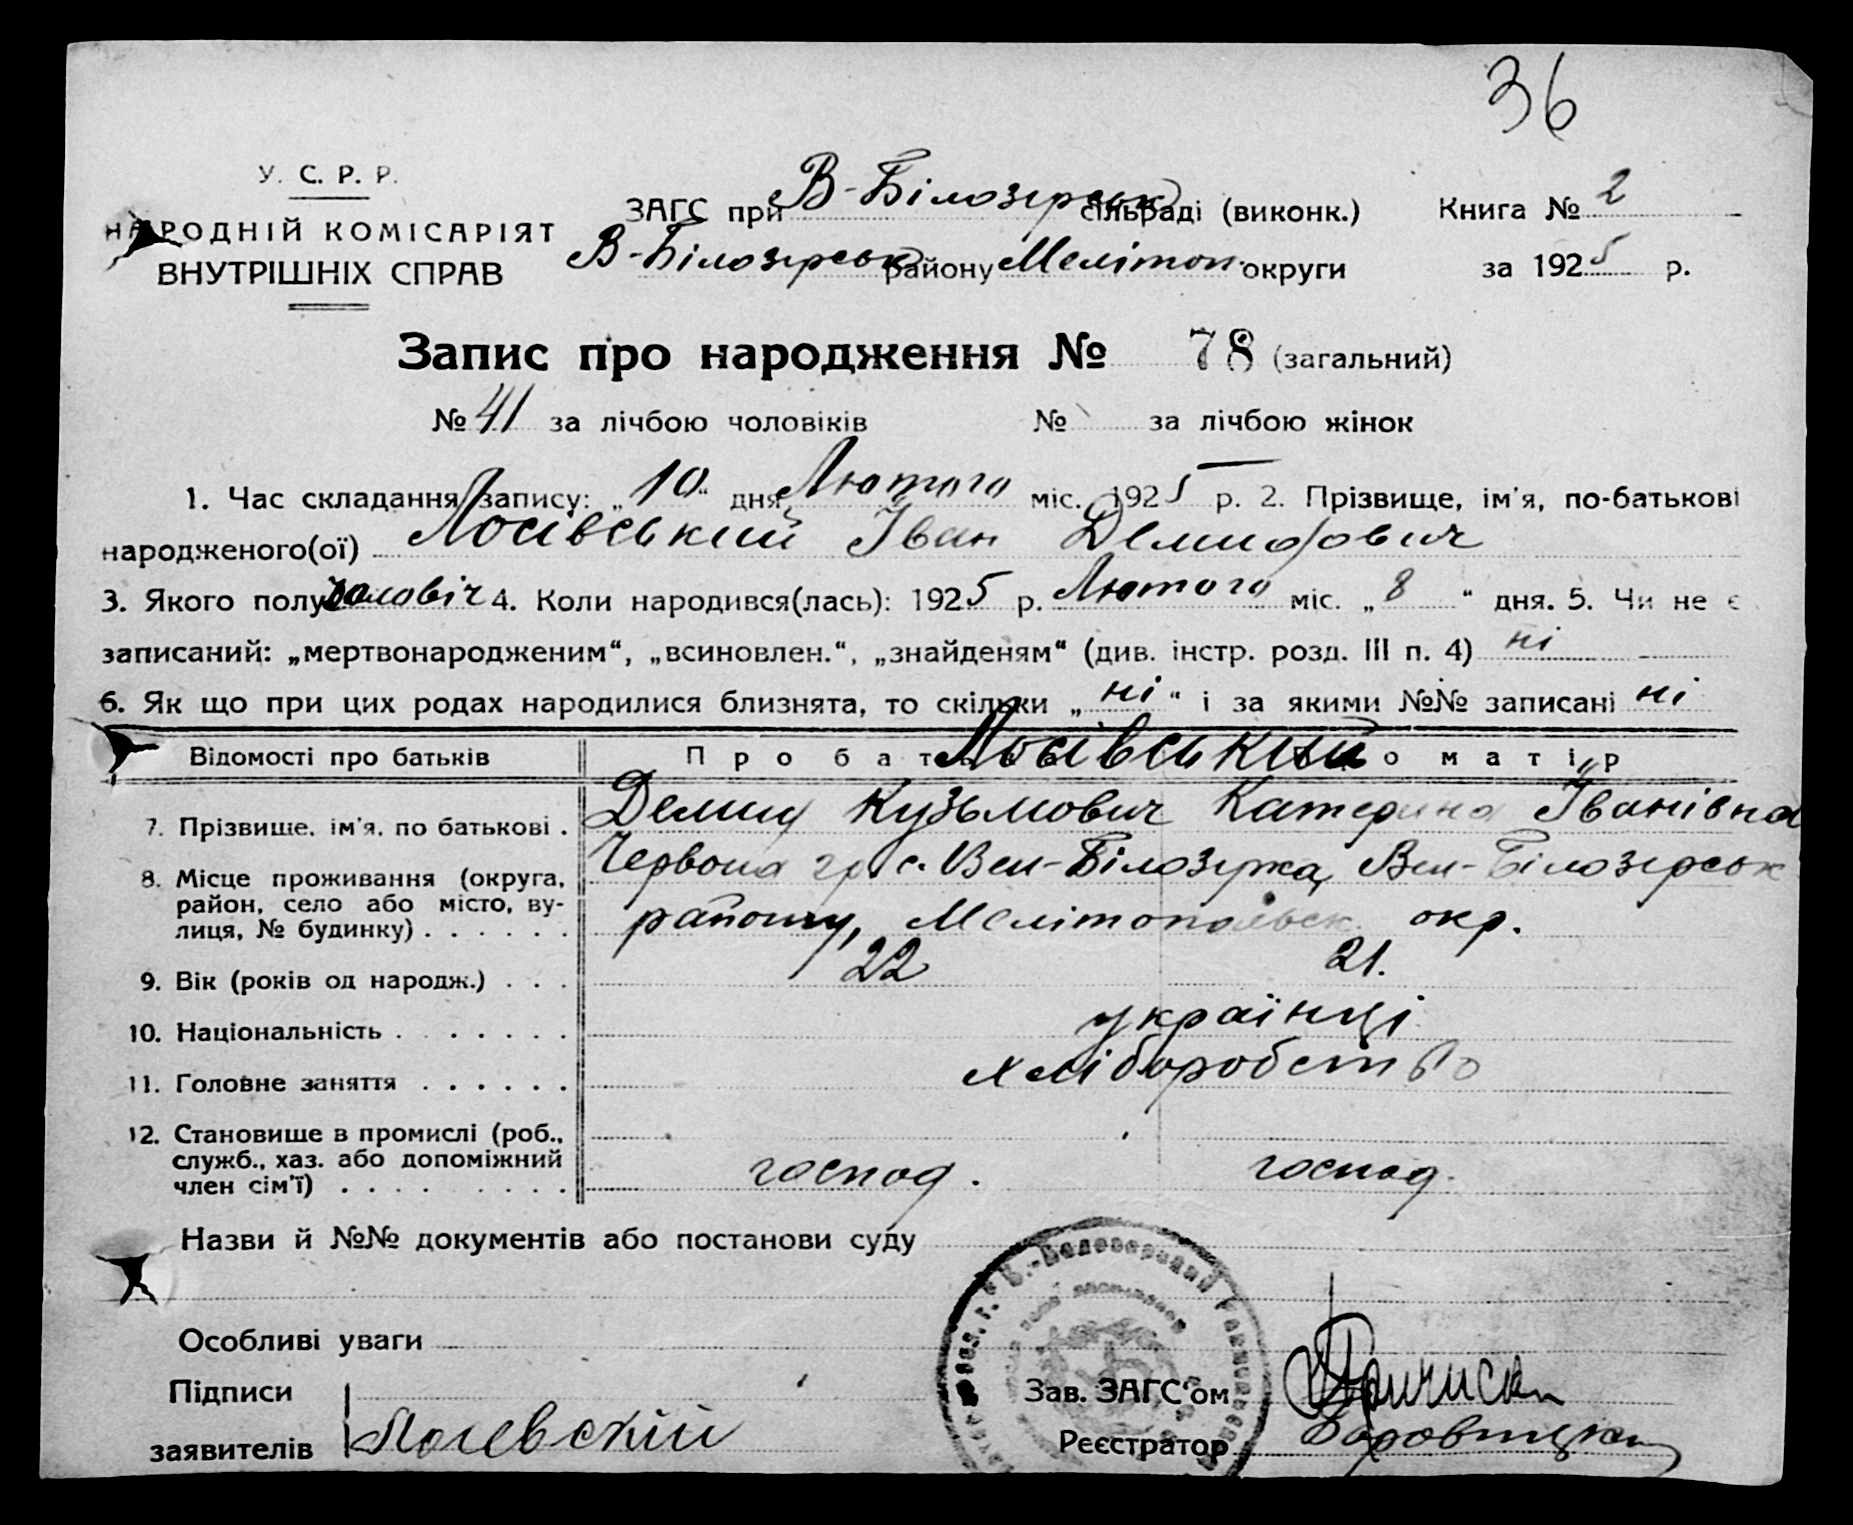 36
У. С. Р. Р.
НАРОДНІЙ КОМІСАРІЯТ
ВНУТРІШНІХ СПРАВ
ЗАГС при В-Білозерськ сільраді (виконк.) Книга № 2
В-Білозерськ району Мелітоп. округи за 1925 р.
Запис про народження № 78 (загальний)
№ 41 за лічбою чоловіків № за лічбою жінок
1. Час складання запису: „10“ дня Лютого міс. 1925 р. 2. Прізвище, ім'я, по-батькові
народженого(ої) Лосівський Іван Демидович
3. Якого полу чоловіч 4. Коли народився(лась): 1925 р. Лютого міс. „8“ дня. 5. Чи не є
записаний: „мертвонародженим“, „всиновлен.“, „знайденям“ (див. інстр. розд. III п. 4) ні
6. Як що при цих родах народилися близнята, то скільки „ні“ і за якими №№ записані ні
Відомості про батьків Про батька Лосівський Про матір
7. Прізвище, ім'я, по батькові . Демид Кузьмович Катерина Іванівна
8. Місце проживання (округа, район, село або місто, вулиця, № будинку) . . . . . . Червона гр. с. Вел-Білозерка, Вел-Білозерськ
району, Мелітопольськ. окр.
9. Вік (років од народж.) . . . 22 21.
10. Національність . . . . . . . українці
11. Головне заняття . . . . . . хліборобство
12. Становище в промислі (роб., служб., хаз. або допоміжний член сім'ї) . . . . . . . . . господ. господ.
Назви й №№ документів або постанови суду
Особливі уваги
Підписи
заявителів Лосевский
Зав. ЗАГС'ом
Реєстратор